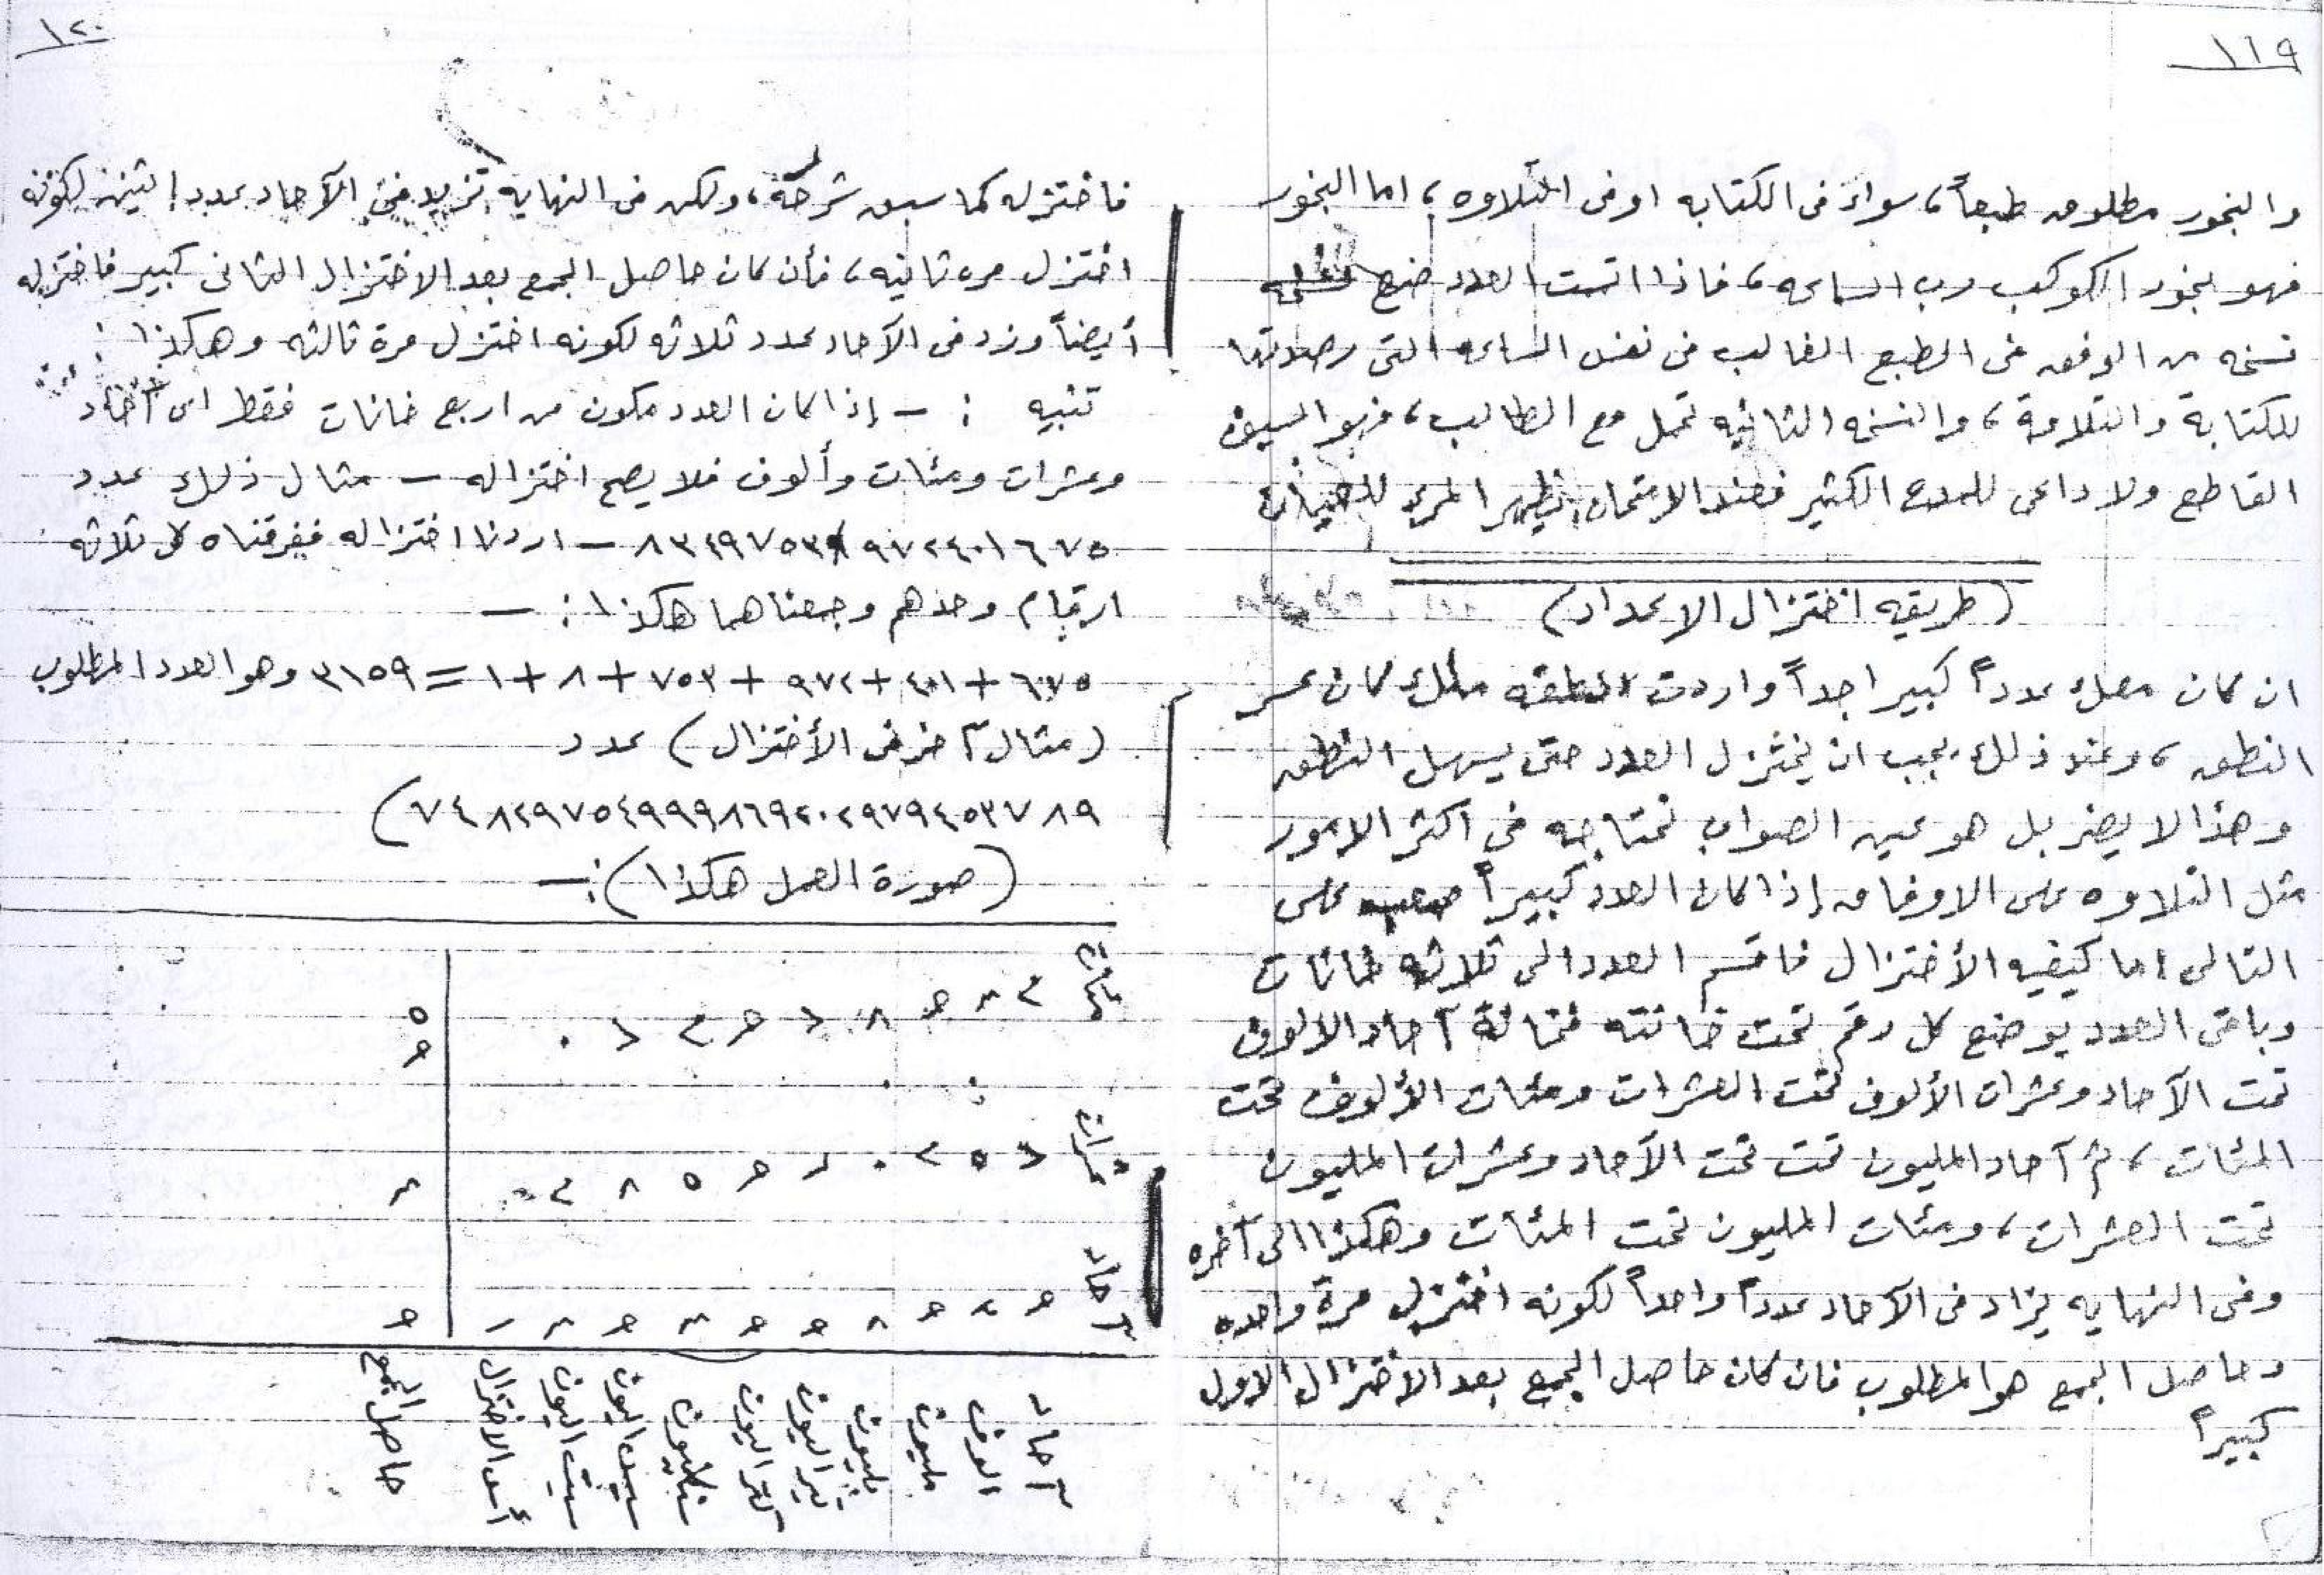 ١١٩
والبخور مطلوب طبعاً، سواء فى الكتابه او فى التلاوه، اما البخور
فهو بخور الكوكب رب الساعه، فاذا اتممت العدد ضع
نسخه من الوفق فى الطبع الغالب فى نفس الساعه التى رصدتها
للكتابة والتلاوة، والنسخه الثانيه تحمل مع الطالب، فهو السيف
القاطع ولا داعى للمدح الكثير فعند الامتحان يظهر المرء للعيان
(طريقه اختزال الاعداد)
ان كان معك عدداً كبيرا جداً واردت كان عسر
النطق، وعند ذلك يجب ان يختزل العدد حتى يسهل النطق
وهذا لا يضر بل هو عين الصواب تحتاجه فى اكثر الامور
مثل التلاوه على الاوفاق إذا كان العدد كبيراً صعب على
التالى اما كيفيه الأختزال فاقسم العدد الى ثلاثه خانات
وباقى العدد يوضع كل رقم تحت خانته فخانة آحاد الالوف
تحت الآحاد وعشرات الألوف تحت العشرات ومئات الألوف تحت
المئات، ثم آحاد المليون تحت تحت الآحاد وعشرات المليون
تحت العشرات، ومئات المليون تحت المئات وهكذا الى آخره
وفى النهايه يزاد فى الآحاد عدداً واحداً لكونه اختزل مرة واحده
وحاصل الجمع هو المطلوب فان كان حاصل الجمع بعد الاختزال الاول
كبيراً
١٢٠
فاختزله كما سبق شرحة، ولكن فى النهايه تزيد فى الآحاد عدد إثنين لكونه
اختزل مره ثانيه، فأن كان حاصل الجمع بعد الاختزال الثانى كبير فاختزله
أيضاً وزد فى الآحاد عدد ثلاثه لكونه اختزل مرة ثالثه وهكذا :
تنبيه : - إذا كان العدد مكون من اربع خانات فقط اى آحاد
وعشرات ومئات وألوف فلا يصح اختزاله - مثال ذلك عدد
اردنا اختزاله ففرقناه كل ثلاثه
ارقام وحدهم وجمعناهما هكذا : -
٦٧٥ + ٤٠١ + ٩٧٢ + ٧٥٣ + ٨ + ١ = ٣١٥٩ وهو العدد المطلوب
(مثال آخر فى الأختزال) عدد
(٧٤٨٢٩٧٥٤٩٩٩٨٦٩٢٠٢٩٧٩٤٥٣٧٨٩
(صورة العمل هكذا) : -
مئات
عشرات
آحاد
آحاد
الوف
مليون
بليون
أس الاختزال
حاصل الجمع